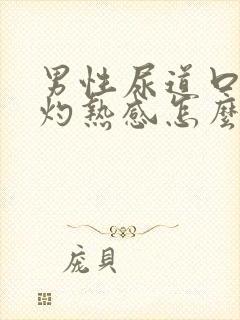 男性尿道口
灼熱感怎麼
庞貝